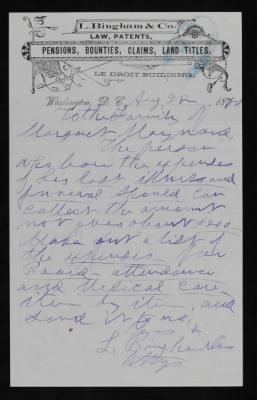 L. Bingham & Co.
LAW, PATENTS,
PENSIONS, BOUNTIES, CLAIMS, LAND TITLES.
LE DROIT BUILDING.
Washington, D. C. Aug 187
To the Family of
Margaret Maynard,
The person
who bore the expenses
of her last illness and
funeral should can
collect the amount
not over about
Make out a list of
the expenses for
Board attendance
and Medical care
item by item, and
send it to us,
L. Bingham & Co
Attys